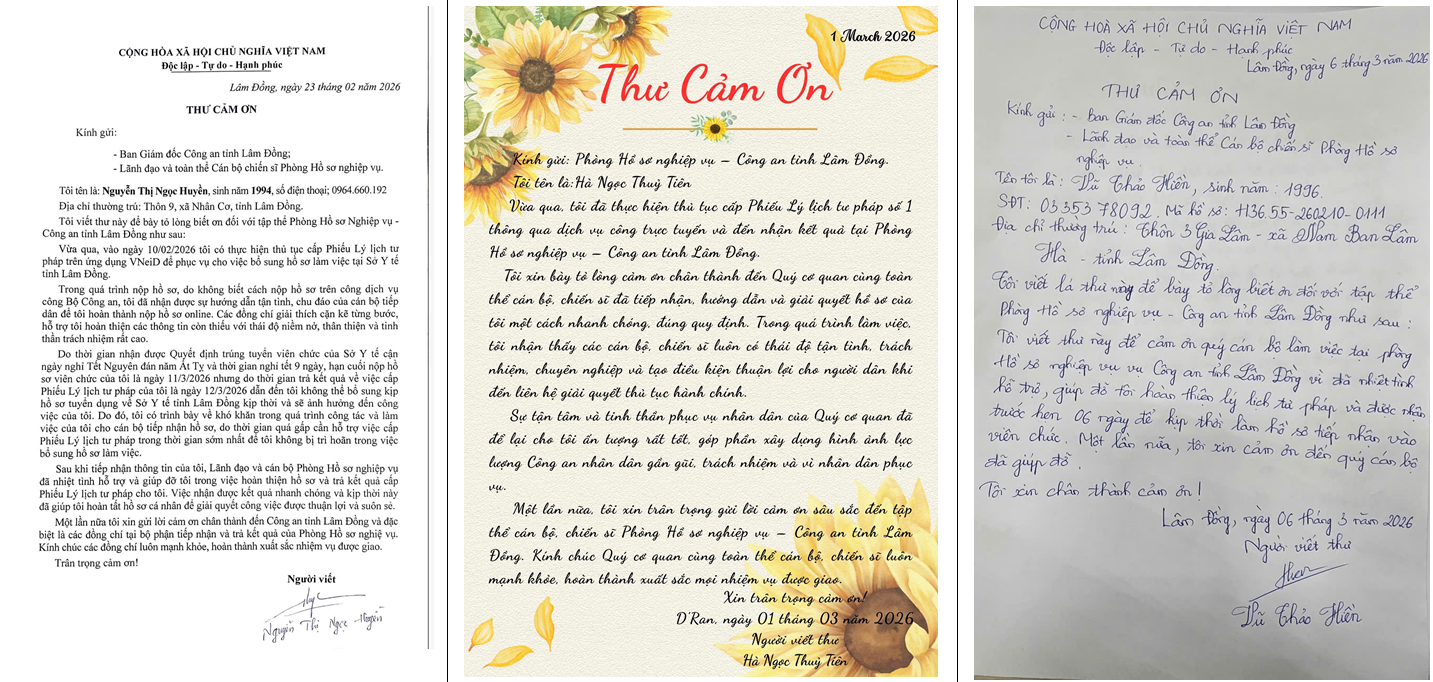 CỘNG HÒA XÃ HỘI CHỦ NGHĨA VIỆT NAM
Độc lập - Tự do - Hạnh phúc
Lâm Đồng, ngày 23 tháng 02 năm 2026
THƯ CẢM ƠN
Kính gửi:
- Ban Giám đốc Công an tỉnh Lâm Đồng;
- Lãnh đạo và toàn thể Cán bộ chiến sĩ Phòng Hồ sơ nghiệp vụ.
Tôi tên là: Nguyễn Thị Ngọc Huyền, sinh năm 1994, số điện thoại; 0964.660.192
Địa chỉ thường trú: Thôn 9, xã Nhân Cơ, tỉnh Lâm Đồng.
Tôi viết thư này để bày tỏ lòng biết ơn đối với tập thể Phòng Hồ sơ Nghiệp vụ -
Công an tỉnh Lâm Đồng như sau:
Vừa qua, vào ngày 10/02/2026 tôi có thực hiện thủ tục cấp Phiếu Lý lịch tư
pháp trên ứng dụng VNeiD để phục vụ cho việc bổ sung hồ sơ làm việc tại Sở Y tế
tỉnh Lâm Đồng.
Trong quá trình nộp hồ sơ, do không biết cách nộp hồ sơ trên công dịch vụ
công Bộ Công an, tôi đã nhận được sự hướng dẫn tận tình, chu đáo của cán bộ tiếp
dân để tôi hoàn thành nộp hồ sơ online. Các đồng chí giải thích cặn kẽ từng bước,
hỗ trợ tôi hoàn thiện các thông tin còn thiếu với thái độ niềm nở, thân thiện và tinh
thần trách nhiệm rất cao.
Do thời gian nhận được Quyết định trúng tuyển viên chức của Sở Y tế cận
ngày nghỉ Tết Nguyên đán năm Ất Tỵ và thời gian nghỉ tết 9 ngày, hạn cuối nộp hồ
sơ viên chức của tôi là ngày 11/3/2026 nhưng do thời gian trả kết quả về việc cấp
Phiếu Lý lịch tư pháp của tôi là ngày 12/3/2026 dẫn đến tôi không thể bổ sung kịp
hồ sơ tuyển dụng về Sở Y tế tỉnh Lâm Đồng kịp thời và sẽ ảnh hưởng đến công
việc của tôi. Do đó, tôi có trình bày về khó khăn trong quá trình công tác và làm
việc của tôi cho cán bộ tiếp nhận hồ sơ, do thời gian quá gấp cần hỗ trợ việc cấp
Phiếu Lý lịch tư pháp trong thời gian sớm nhất để tôi không bị trì hoãn trong việc
bổ sung hồ sơ làm việc.
Sau khi tiếp nhận thông tin của tôi, Lãnh đạo và cán bộ Phòng Hồ sơ nghiệp vụ
đã nhiệt tình hỗ trợ và giúp đỡ tôi trong việc hoàn thiện hồ sơ và trả kết quả cấp
Phiếu Lý lịch tư pháp cho tôi. Việc nhận được kết quả nhanh chóng và kịp thời này
đã giúp tôi hoàn tất hồ sơ cá nhân để giải quyết công việc được thuận lợi và suôn sẻ.
Một lần nữa tôi xin gửi lời cảm ơn chân thành đến Công an tỉnh Lâm Đồng và đặc
biệt là các đồng chí tại bộ phận tiếp nhận và trả kết quả của Phòng Hồ sơ nghiệ vụ.
Kính chúc các đồng chí luôn mạnh khỏe, hoàn thành xuất sắc nhiệm vụ được giao.
Trân trọng cảm ơn!
Người viết
Nguyễn Thị Ngọc Huyền
1 March 2026
Thư Cảm Ơn
Kính gửi: Phòng Hồ sơ nghiệp vụ – Công an tỉnh Lâm Đồng.
Tôi tên là:Hà Ngọc Thuỷ Tiên
Vừa qua, tôi đã thực hiện thủ tục cấp Phiếu Lý lịch tư pháp số 1
thông qua dịch vụ công trực tuyến và đến nhận kết quả tại Phòng
Hồ sơ nghiệp vụ – Công an tỉnh Lâm Đồng.
Tôi xin bày tỏ lòng cảm ơn chân thành đến Quý cơ quan cùng toàn
thể cán bộ, chiến sĩ đã tiếp nhận, hướng dẫn và giải quyết hồ sơ của
tôi một cách nhanh chóng, đúng quy định. Trong quá trình làm việc,
tôi nhận thấy các cán bộ, chiến sĩ luôn có thái độ tận tình, trách
nhiệm, chuyên nghiệp và tạo điều kiện thuận lợi cho người dân khi
đến liên hệ giải quyết thủ tục hành chính.
Sự tận tâm và tinh thần phục vụ nhân dân của Quý cơ quan đã
để lại cho tôi ấn tượng rất tốt, góp phần xây dựng hình ảnh lực
lượng Công an nhân dân gần gũi, trách nhiệm và vì nhân dân phục
vụ.
Một lần nữa, tôi xin trân trọng gửi lời cảm ơn sâu sắc đến tập
thể cán bộ, chiến sĩ Phòng Hồ sơ nghiệp vụ – Công an tỉnh Lâm
Đồng. Kính chúc Quý cơ quan cùng toàn thể cán bộ, chiến sĩ luôn
mạnh khỏe, hoàn thành xuất sắc mọi nhiệm vụ được giao.
Xin trân trọng cảm ơn!
D'Ran, ngày 01 tháng 03 năm 2026
Người viết thư
Hà Ngọc Thuỷ Tiên
CỘNG HOÀ XÃ HỘI CHỦ NGHĨA VIỆT NAM
Độc lập - Tự do - Hạnh phúc
Lâm Đồng, ngày 6 tháng 3 năm 2026
THƯ CẢM ƠN
Kính gửi : - Ban Giám đốc Công an tỉnh Lâm Đồng
- Lãnh đạo và toàn thể Cán bộ chiến sĩ Phòng Hồ sơ
nghiệp vụ.
Tên tôi là : Vũ Thảo Hiền, sinh năm : 1996.
SĐT: 03353 78092. Mã hồ sơ: H36.55-260210-0111
Địa chỉ thường trú : Thôn 3 Gia Lâm - xã Nam Ban Lâm
Hà - tỉnh Lâm Đồng.
Tôi viết lá thư này để bày tỏ lòng biết ơn đối với tập thể
Phòng Hồ sơ nghiệp vụ - Công an tỉnh Lâm Đồng như sau :
Tôi viết thư này để cảm ơn quý cán bộ làm việc tại phòng
Hồ sơ nghiệp vụ vụ Công an tỉnh Lâm Đồng vì đã nhiệt tình
hỗ trợ, giúp đỡ tôi hoàn thiện lý lịch tư pháp và được nhận
trước hẹn 06 ngày để kịp thời làm hồ sơ tiếp nhận vào
viên chức. Một lần nữa, tôi xin cảm ơn đến quý cán bộ
đã giúp đỡ.
Tôi xin chân thành cảm ơn!
Lâm Đồng, ngày 06 tháng 3 năm 2026
Người viết thư
Hiền
Vũ Thảo Hiền